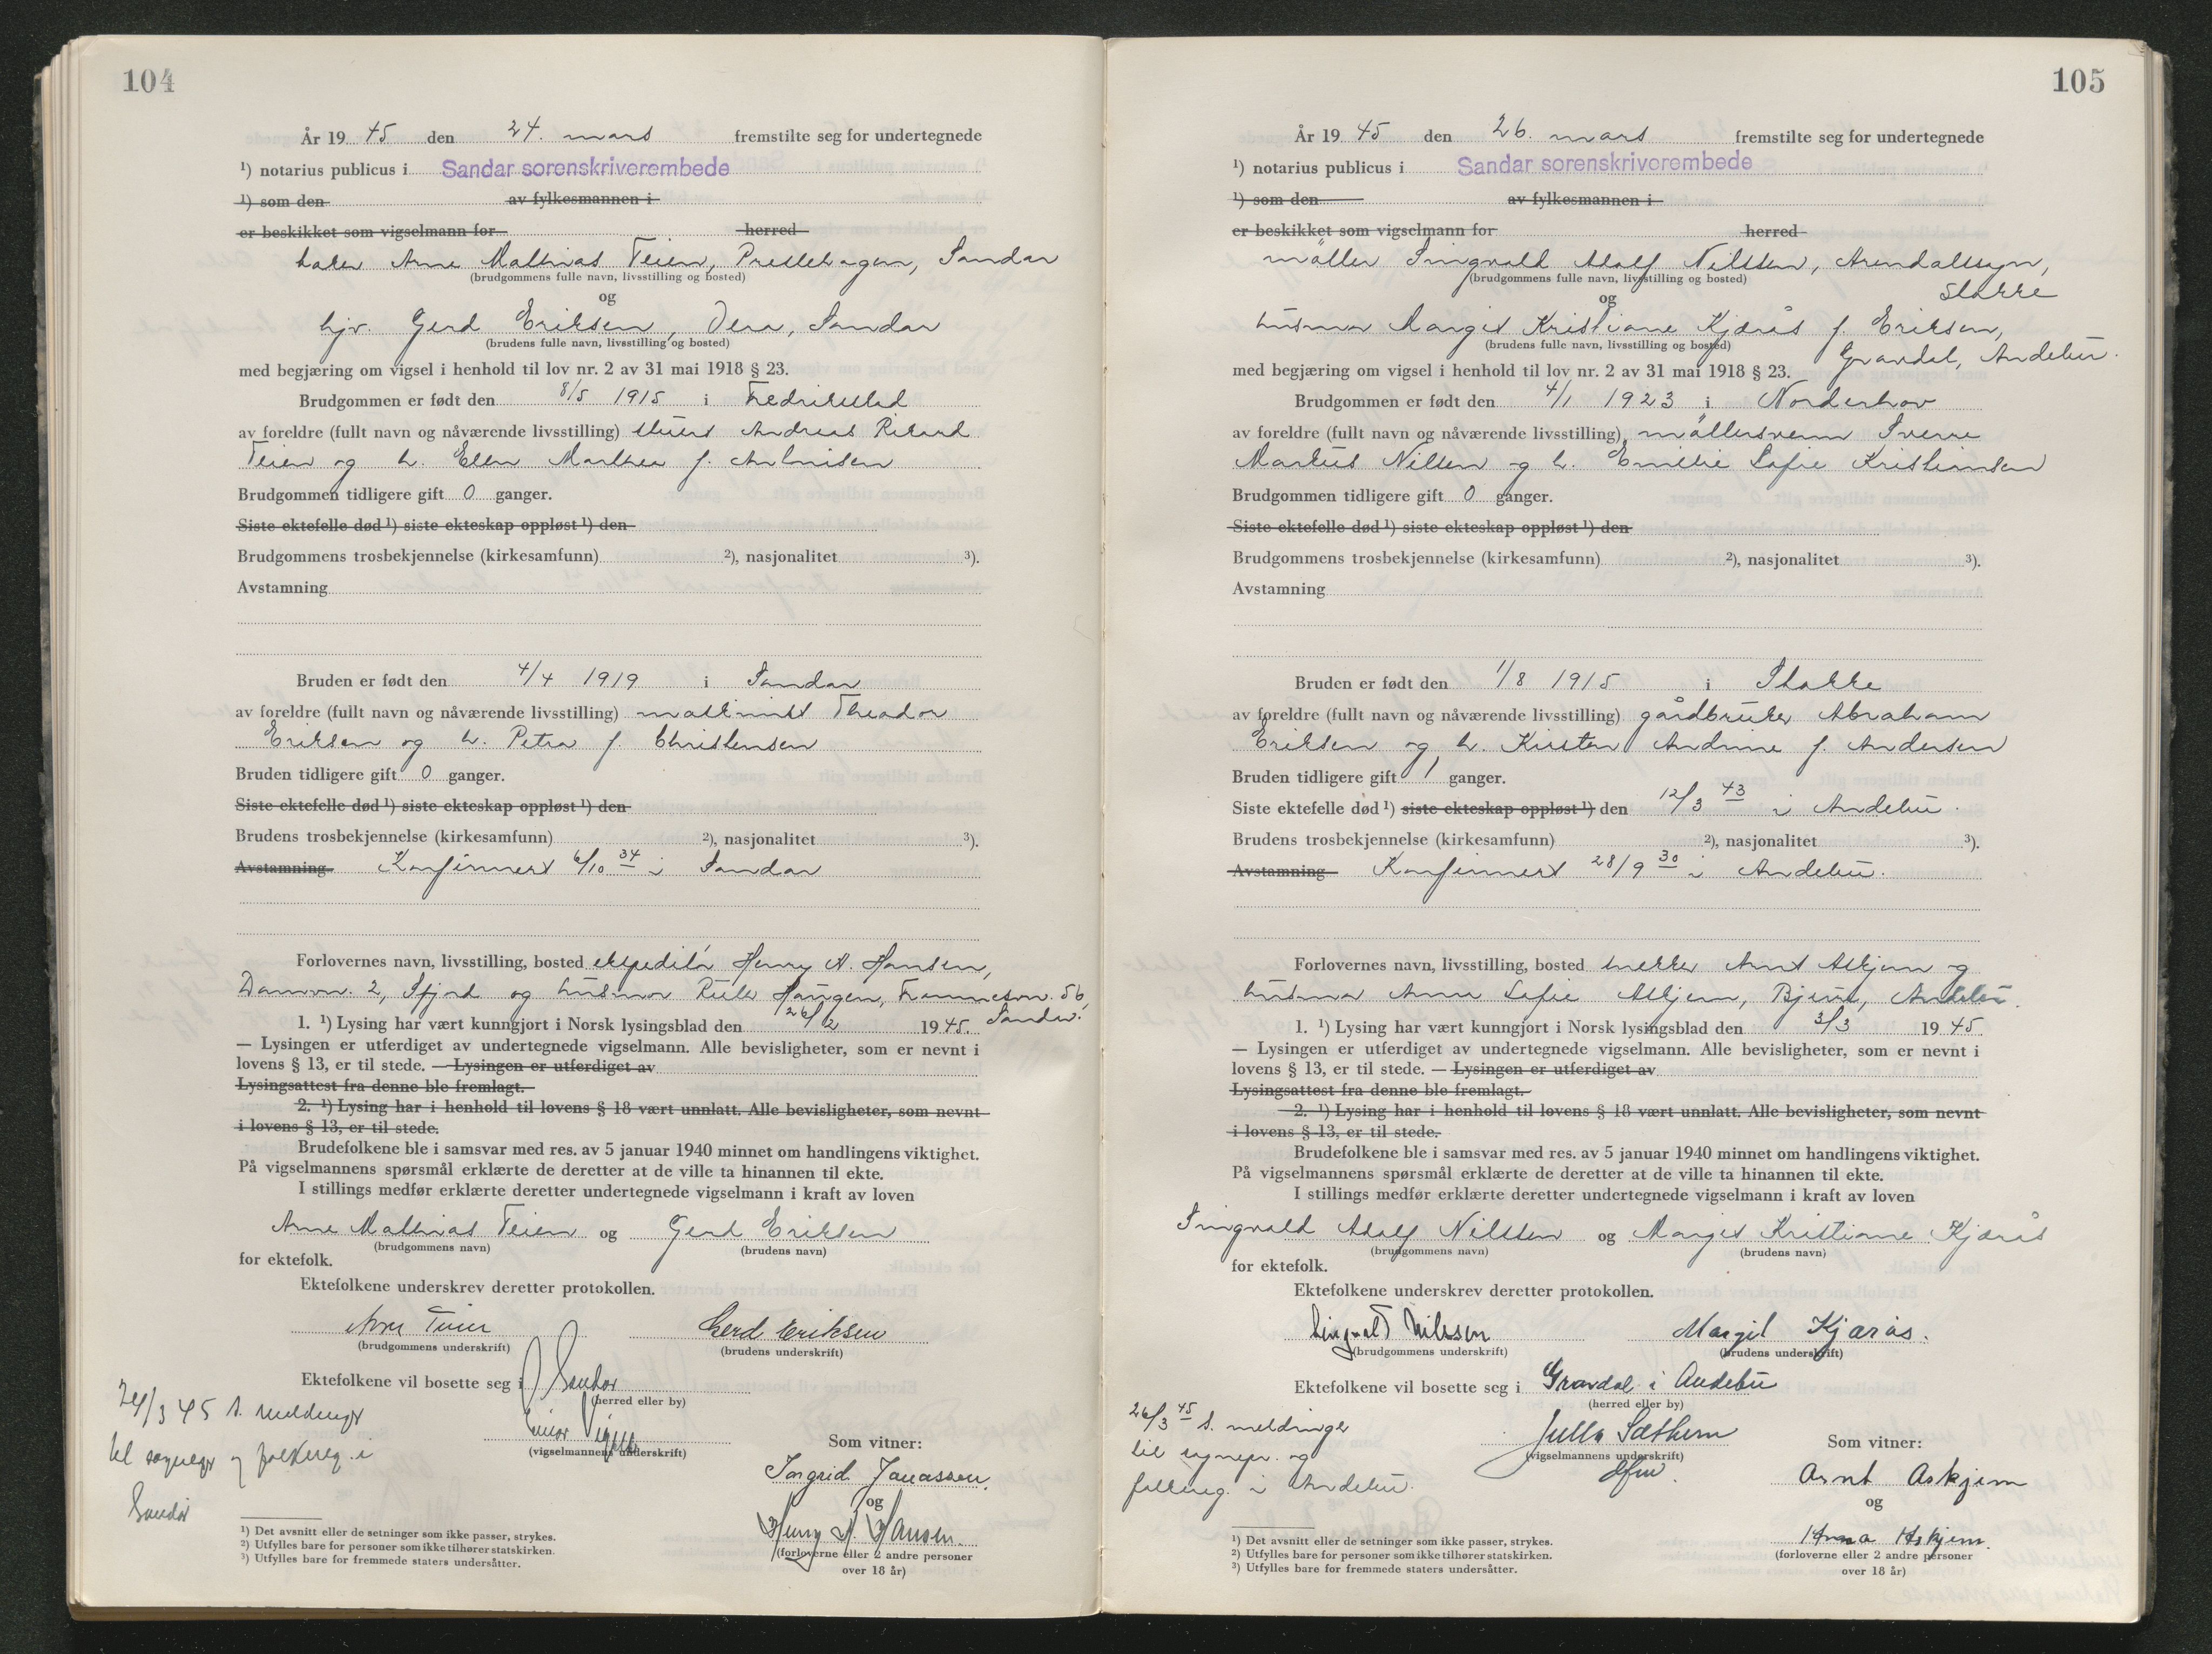 104
År 19 45 den 24. mars fremstilte seg for undertegnede
¹) notarius publicus i Sandar sorenskriverembede
¹) som den av fylkesmannen i
er beskikket som vigselmann for herred
Arne Mathias Teien, Prestehagen, Sandar
(brudgommens fulle navn, livsstilling og bosted)
og
hjv. Gerd Eriksen, Vera, Sandar
(brudens fulle navn, livsstilling og bosted)
med begjæring om vigsel i henhold til lov nr. 2 av 31 mai 1918 § 23.
Brudgommen er født den 8/5 1915 i Fredrikstad
av foreldre (fullt navn og nåværende livsstilling) Andreas Rikard
Teien og h. Ellen Marthea f. Antonisen
Brudgommen tidligere gift 0 ganger.
Siste ektefelle død ¹) siste ekteskap oppløst ¹) den
Brudgommens trosbekjennelse (kirkesamfunn) ²), nasjonalitet ³).
Avstamning
Bruden er født den 4/4 1919 i Sandar
av foreldre (fullt navn og nåværende livsstilling) maskinist Theodor
Eriksen og h. Petra f. Christensen
Bruden tidligere gift 0 ganger.
Siste ektefelle død ¹) siste ekteskap oppløst ¹) den
Brudens trosbekjennelse (kirkesamfunn) ²), nasjonalitet ³).
Avstamning Konfirmert 6/10 34 i Sandar
Forlovernes navn, livsstilling, bosted ekspeditør Henry A. Hansen,
Damvn. 2, Sfjord og husmor Haugen, Framnesvn. 56,
Sandar.
1. ¹) Lysing har vært kunngjort i Norsk lysingsblad den 26/2 1945.
— Lysingen er utferdiget av undertegnede vigselmann. Alle bevisligheter, som er nevnt i
lovens § 13, er til stede. — Lysingen er utferdiget av
Lysingsattest fra denne ble fremlagt.
2. ¹) Lysing har i henhold til lovens § 18 vært unnlatt. Alle bevisligheter, som nevnt
i lovens § 13, er til stede.
Brudefolkene ble i samsvar med res. av 5 januar 1940 minnet om handlingens viktighet.
På vigselmannens spørsmål erklærte de deretter at de ville ta hinannen til ekte.
I stillings medfør erklærte deretter undertegnede vigselmann i kraft av loven
Arne Mathias Teien og Gerd Eriksen
(brudgommens navn) (brudens navn)
for ektefolk.
Ektefolkene underskrev deretter protokollen.
Arne Teien Gerd Eriksen
(brudgommens underskrift) (brudens underskrift)
Ektefolkene vil bosette seg i Sandar
(herred eller by)
24/3 45 s. meldinger
til sognepr og folkereg. i
Sandar
Einar
(vigselmannens underskrift)
Som vitner:
Ingrid Jonassen.
og
Henry A. Hansen.
(forloverne eller 2 andre personer
over 18 år)
¹) Det avsnitt eller de setninger som ikke passer, strykes.
²) Utfylles bare for personer som ikke tilhører statskirken.
³) Utfylles bare for fremmede staters undersåtter.
105
År 19 45 den 26. mars fremstilte seg for undertegnede
¹) notarius publicus i Sandar sorenskriverembede
¹) som den av fylkesmannen i
er beskikket som vigselmann for herred
møller Singvald Adolf Nilssen, Arendalsogn,
(brudgommens fulle navn, livsstilling og bosted)
Stokke
og
husmor Margit Kristiane Kjærås f. Eriksen,
(brudens fulle navn, livsstilling og bosted)
Gravdal, Andebu.
med begjæring om vigsel i henhold til lov nr. 2 av 31 mai 1918 § 23.
Brudgommen er født den 4/1 1923 i Norderhov
av foreldre (fullt navn og nåværende livsstilling) møllersvenn Sverre
Markus Nilssen og h. Emilie Sofie Kristiansen
Brudgommen tidligere gift 0 ganger.
Siste ektefelle død ¹) siste ekteskap oppløst ¹) den
Brudgommens trosbekjennelse (kirkesamfunn) ²), nasjonalitet ³).
Avstamning
Bruden er født den 1/8 1915 i Stokke
av foreldre (fullt navn og nåværende livsstilling) gårdbruker Abraham
Eriksen og h. Kirsten Andrine f. Andersen
Bruden tidligere gift 1 ganger.
Siste ektefelle død ¹) siste ekteskap oppløst ¹) den 12/3 43 i Andebu.
Brudens trosbekjennelse (kirkesamfunn) ²), nasjonalitet ³).
Avstamning Konfirmert 28/9 30 i Andebu.
Forlovernes navn, livsstilling, bosted snekker Arnt Askjem og
husmor Anna Sofie Askjem, Bjerve, Andebu.
1. ¹) Lysing har vært kunngjort i Norsk lysingsblad den 3/3 1945
— Lysingen er utferdiget av undertegnede vigselmann. Alle bevisligheter, som er nevnt i
lovens § 13, er til stede. — Lysingen er utferdiget av
Lysingsattest fra denne ble fremlagt.
2. ¹) Lysing har i henhold til lovens § 18 vært unnlatt. Alle bevisligheter, som nevnt
i lovens § 13, er til stede.
Brudefolkene ble i samsvar med res. av 5 januar 1940 minnet om handlingens viktighet.
På vigselmannens spørsmål erklærte de deretter at de ville ta hinannen til ekte.
I stillings medfør erklærte deretter undertegnede vigselmann i kraft av loven
Singvald Adolf Nilssen og Margit Kristiane Kjærås
(brudgommens navn) (brudens navn)
for ektefolk.
Ektefolkene underskrev deretter protokollen.
Singvald Nilssen Margit Kjærås.
(brudgommens underskrift) (brudens underskrift)
Ektefolkene vil bosette seg i Gravdal i Andebu
(herred eller by)
26/3 45 s. meldinger
til sognepr. og
folkereg. i Andebu.
Sæthern
(vigselmannens underskrift)
Som vitner:
Arnt Askjem
og
Anna Askjem.
(forloverne eller 2 andre personer
over 18 år)
¹) Det avsnitt eller de setninger som ikke passer, strykes.
²) Utfylles bare for personer som ikke tilhører statskirken.
³) Utfylles bare for fremmede staters undersåtter.